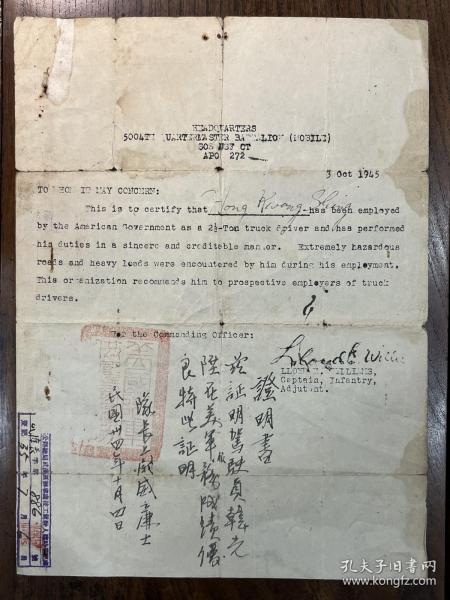 HEADQUARTERS
5004TH QUARTERMASTER BATTALION (MOBILE)
SOS USF CT
APO 272
3 Oct 1945
TO WHOM IT MAY CONCERN:
This is to certify that Hong Kwang Shing has been employed
by the American Government as a 2½-Ton truck driver and has performed
his duties in a sincere and creditable manner. Extremely hazardous
roads and heavy loads were encountered by him during his employment.
This organization recommends him to prospective employers of truck
drivers.
For the Commanding Officer:
LLOYD E. WILLIAMS,
Captain, Infantry,
Adjutant.
證明書
茲証明駕駛員韓光
陞在美軍服務成績優
良特此証明
隊長上尉威廉士
民國卅四年十月四日
孔夫子旧书网
www.kongfz.com